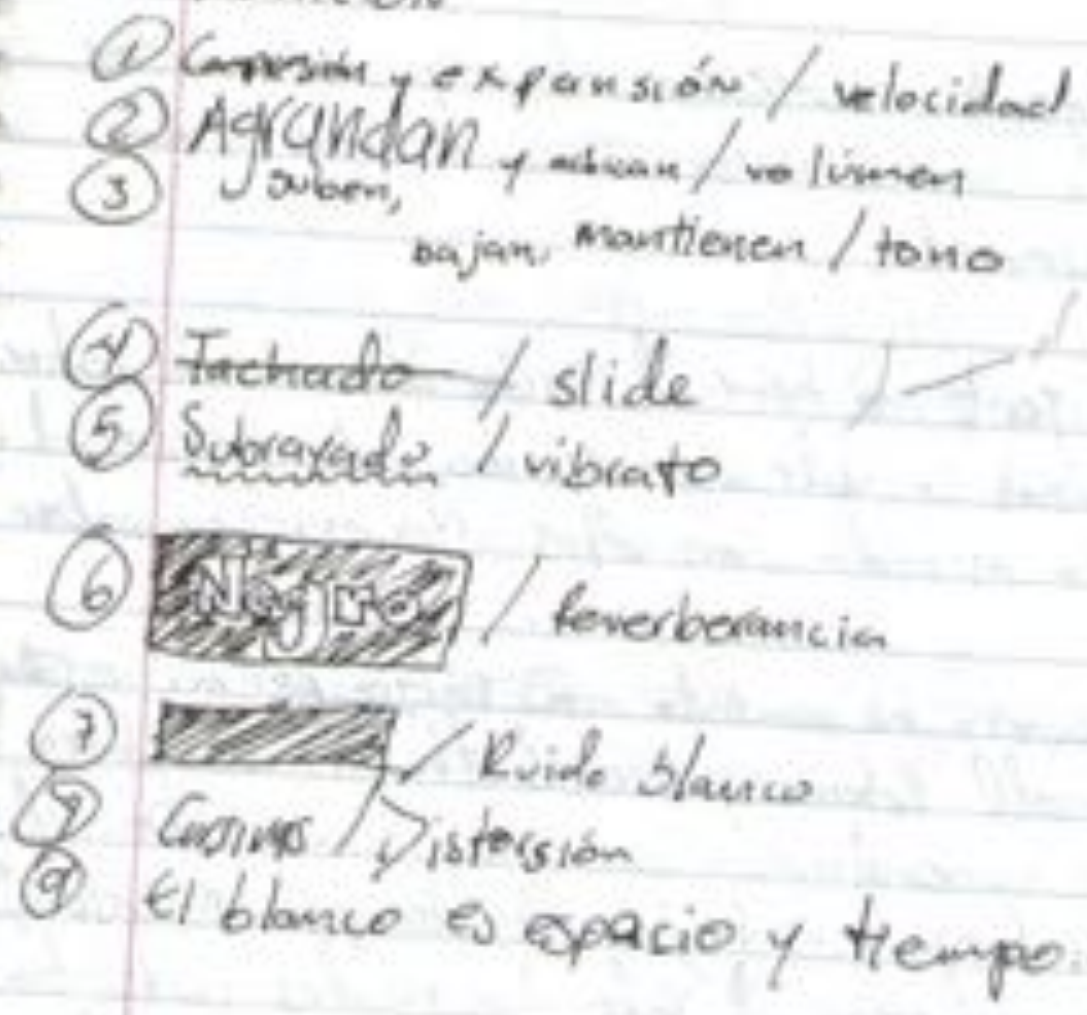 ① Compresión y expansión / velocidad
② Agrandan y achican / volúmen
③ suben, bajan, mantienen / tono
④ Tachado / slide
⑤ Subrayado / vibrato
⑥ Negro / Reverberancia
⑦ / Ruido blanco
⑧ / Distorsión
⑨ El blanco es espacio y tiempo.